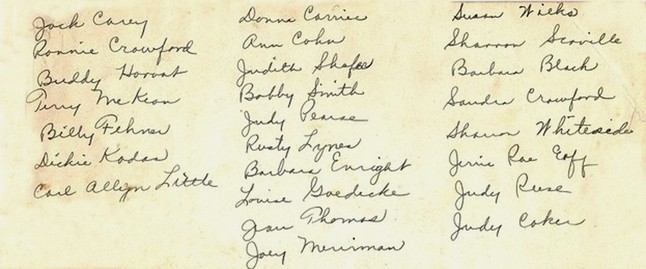 Jack Carey
Ronnie Crawford
Buddy Horvat
Terry McKean
Billy Fehner
Dickie Kodas
Carl Allyn Little
Donna Carrier
Ann Cohn
Judith Shafer
Bobby Smith
Judy Pearse
Rusty Lynes
Barbara Enright
Louise Goedicke
Jean Thomas
Joey Merriman
Susan Wilks
Sharron Scoville
Barbara Black
Sandra Crawford
Sharon Whiteside
Jerrie Rae Goff
Judy Reese
Judy Coker